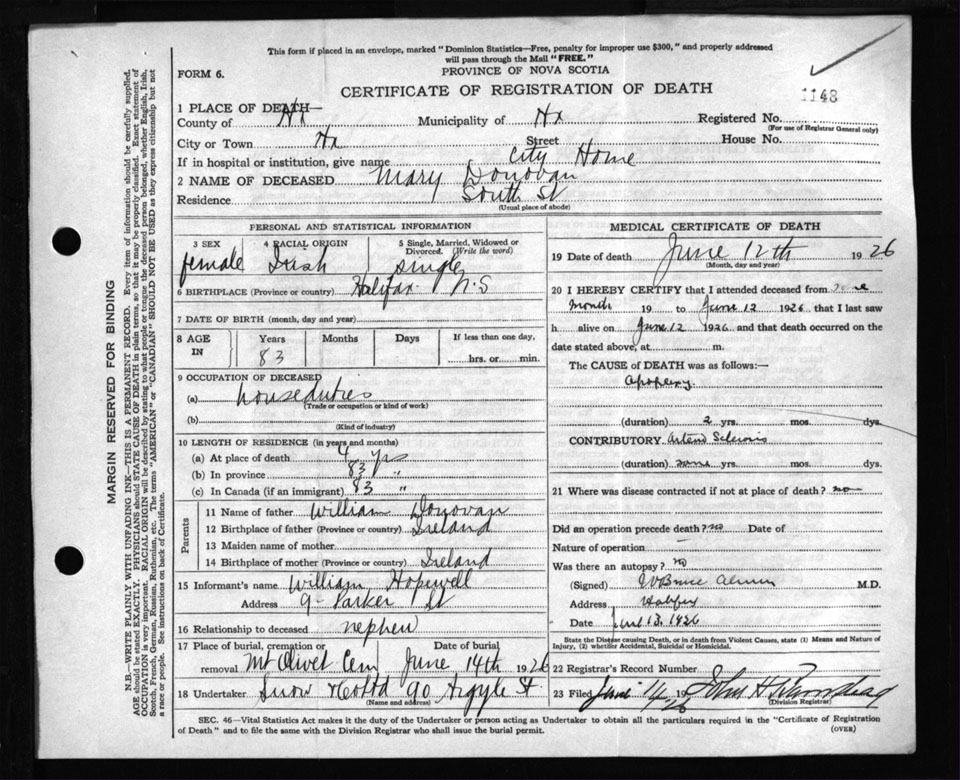 This form if placed in an envelope, marked "Dominion Statistics—Free, penalty for improper use $300," and properly addressed
will pass through the Mail "FREE."
FORM 6.
PROVINCE OF NOVA SCOTIA
CERTIFICATE OF REGISTRATION OF DEATH
1148
1 PLACE OF DEATH—
County of Hx Municipality of Hx Registered No.
(For use of Registrar General only)
City or Town Hx Street House No.
If in hospital or institution, give name City Home
2 NAME OF DECEASED Mary Donovan
Residence South St
(Usual place of abode)
PERSONAL AND STATISTICAL INFORMATION
3 SEX 4 RACIAL ORIGIN 5 Single, Married, Widowed or
Divorced. (Write the word)
female Irish single
6 BIRTHPLACE (Province or country) Halifax N.S
7 DATE OF BIRTH (month, day and year)
8 AGE IN Years Months Days If less than one day,
83 hrs. or min.
9 OCCUPATION OF DECEASED
(a) house duties
(Trade or occupation or kind of work)
(b)
(Kind of industry)
10 LENGTH OF RESIDENCE (in years and months)
(a) At place of death 4 yrs
(b) In province 83 "
(c) In Canada (if an immigrant) 83 "
Parents
11 Name of father William Donovan
12 Birthplace of father (Province or country) Ireland
13 Maiden name of mother
14 Birthplace of mother (Province or country) Ireland
15 Informant's name William Hopewell
Address 9 Parker St
16 Relationship to deceased nephew
17 Place of burial, cremation or Date of burial
removal Mt Olivet Cem June 14th 1926
18 Undertaker Snow & Co Ltd 90 Argyle St
(Name and address)
MEDICAL CERTIFICATE OF DEATH
19 Date of death June 12th 1926
(Month, day and year)
20 I HEREBY CERTIFY that I attended deceased from some
months 19 to June 12 1926 that I last saw
h alive on June 12 1926 and that death occurred on the
date stated above, at m.
The CAUSE OF DEATH was as follows:—
apoplexy
(duration) 2 yrs. mos. dys.
CONTRIBUTORY Arterio Sclerosis
(duration) some yrs. mos. dys.
21 Where was disease contracted if not at place of death? no
Did an operation precede death? no Date of
Nature of operation
Was there an autopsy? no
(Signed) W Bruce Almon M.D.
Address Halifax
Date June 13. 1926
State the Disease causing Death, or in death from Violent Causes, state (1) Means and Nature of
Injury, (2) whether Accidental, Suicidal or Homicidal.
22 Registrar's Record Number
23 Filed June 14 1926 John H
(Division Registrar)
SEC. 46—Vital Statistics Act makes it the duty of the Undertaker or person acting as Undertaker to obtain all the particulars required in the "Certificate of Registration
of Death" and to file the same with the Division Registrar who shall issue the burial permit.
(OVER)
MARGIN RESERVED FOR BINDING
N.B.—WRITE PLAINLY WITH UNFADING INK—THIS IS A PERMANENT RECORD. Every item of information should be carefully supplied.
AGE should be stated EXACTLY. PHYSICIANS should STATE CAUSE OF DEATH in plain terms, so that it may be properly classified. Exact statement of
OCCUPATION is very important. RACIAL ORIGIN will be described by stating to what people or tongue the deceased person belonged, whether English, Irish,
Scotch, French, German, Russian, Ruthenian, etc. The terms "AMERICAN" or "CANADIAN" SHOULD NOT BE USED as they express citizenship but not
a race or people. See instructions on back of Certificate.